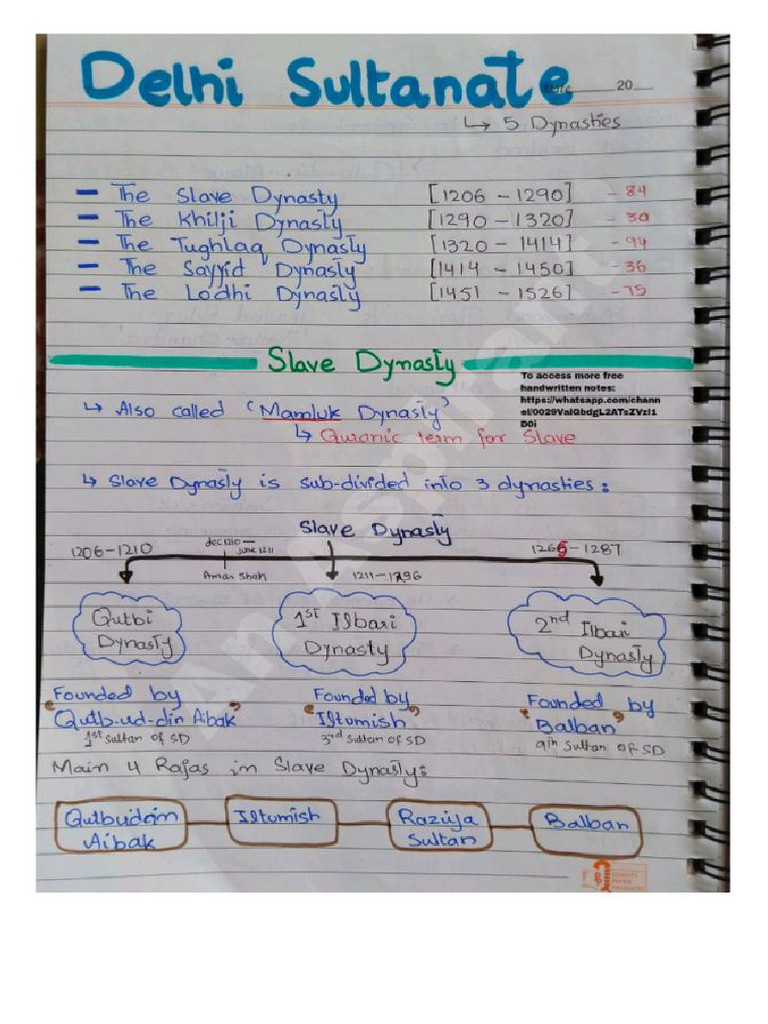 Delhi Sultanate
20
↳ 5 Dynasties
– The Slave Dynasty [1206 – 1290] – 84
– The Khilji Dynasty [1290 – 1320] – 30
– The Tughlaq Dynasty [1320 – 1414] – 94
– The Sayyid Dynasty [1414 – 1450] – 36
– The Lodhi Dynasty [1451 – 1526] – 75
Slave Dynasty
To access more free
handwritten notes:
https://whatsapp.com/chann
el/0029ValGbdgL2ATsZVzI1
D0i
↳ Also called 'Mamluk Dynasty'
↳ Quranic term for Slave
↳ Slave Dynasty is sub-divided into 3 dynasties:
Slave Dynasty
1206–1210
dec1210–
june1211
Aram Shah
1211–1296
1266–1287
Qutbi
Dynasty
1st Ilbari
Dynasty
2nd Ilbari
Dynasty
Founded by
"Qutb-ud-din Aibak"
1st sultan of SD
Founded by
"Iltumish"
3rd sultan of SD
Founded by
"Balban"
9th sultan of SD
Main 4 Rajas in Slave Dynasty:
Qutbuddin
Aibak
Iltumish
Raziya
Sultan
Balban